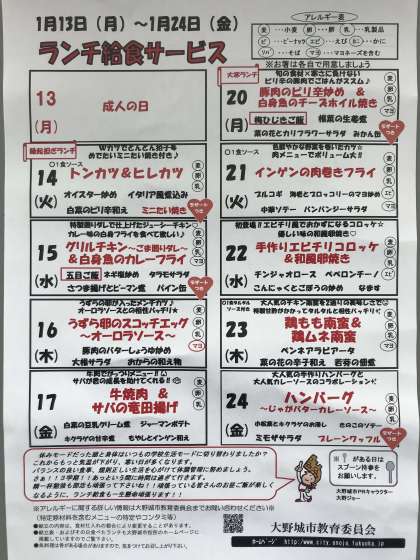 1月13日（月）～1月24日（金）
ランチ給食サービス
アレルギー表
麦…小麦 卵…卵 乳…乳製品
ピ…ピーナッツ エ…えび カ…かに
ソバ…そば マヨ…マヨネーズに含む
※お箸は各自で用意しましょう
13
（月）
成人の日
14
（火）
Wカツでとんとん拍子号
めでたいミニたい焼き付き♪
○1食ソース
トンカツ＆ヒレカツ
オイスター炒め イタリア風煮込み
白菜のピリ辛和え ミニたい焼き
デザートつき
15
（水）
特製割りダレで仕上げたジューシーチキン！
カレー味の白身フライを食べて欲しい♪
グリルチキン～ごま割りダレ～
＆白身魚のカレーフライ
五目ご飯 ネギ塩炒め タラモサラダ
さつま揚げとピーマン煮 パイン缶
デザートつき
16
（木）
うずらの卵が入ったメンチカツ♪
オーロラソースとの相性バッチリ★
うずら卵のスコッチエッグ
～オーロラソース～
豚肉のバターしょうゆ炒め
大根サラダ おからの和え物
17
（金）
牛焼肉＆
サバの竜田揚げ
白菜の豆乳クリーム煮 ジャーマンポテト
キクラゲの甘辛煮 もやしとインゲン和え
20
（月）
大寒ランチ
旬の食材×寒さに負けない
ピリ辛の豚肉でごはんがススム♪
豚肉のピリ辛炒め ＆
白身魚のチーズホイル焼き
梅ひじきご飯 根菜の生姜煮
菜の花とカリフラワーサラダ みかん缶
デザートつき
21
（火）
色鮮やかな野菜を巻いたカツ☆
肉メニューでボリューム大!!
○1食ソース
インゲンの肉巻きフライ
プルコギ 海老とブロッコリーのマヨ炒め
中華ソテー バンバンジーサラダ
22
（水）
初登場!!エビチリでおかずになるコロッケ☆
優しい味の和風卵焼♡
手作りエビチリコロッケ
＆和風卵焼
チンジャオロース ペペロンチーノ
こんにゃくとごぼうの炒め なます
23
（木）
大人気のチキン南蛮を2通りの美味しさで
特製甘酢がかかってタルタルと相性バッチリ♡
鶏もも南蛮＆
鶏ムネ南蛮
ペンネアラビアータ
菜の花の辛子和え 若筍の佃煮
24
（金）
大人気の手作りハンバーグと
大人気カレーソースのコラボレーション
ハンバーグ
～じゃがバターカレーソース～
小松菜とキクラゲのお浸し たのこのソテー
ミモザサラダ プレーンワッフル
デザートつき
休みモードだった頭と身体はいつもの学校生活モードに切り替わりましたか？
これからもっと気温が下がり、寒い日が多くなります。
バランスの良い食事、規則正しい生活を心がけて体調管理に努めましょう。
さぁ!!3学期!!あっという間に時間は過ぎて行きます。
精一杯勉強も部活も頑張って下さいね!!頑張っている皆さんのお昼ご飯が楽しく
なるように、ランチ給食も一生懸命頑張ります!!
※ がある日は
スプーン持参を
お願いします。
大野城市PRキャラクター
大野ジョー
※アレルギーに関する詳しい情報は大野城市教育委員会までお問い合わせください
大野城市教育委員会
ホームページ http://www.city.onojo.fukuoka.jp